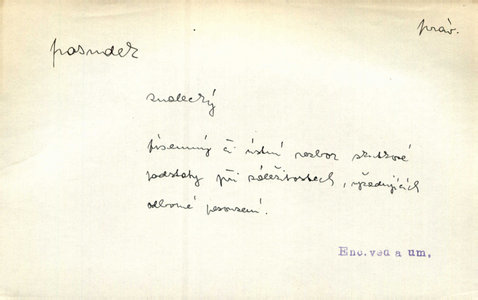 práv.
posudek
znalecký
písemný či ústní rozbor skutkové
podstaty při záležitostech, vyžadujících
odborné posouzení.
Enc. věd a um.